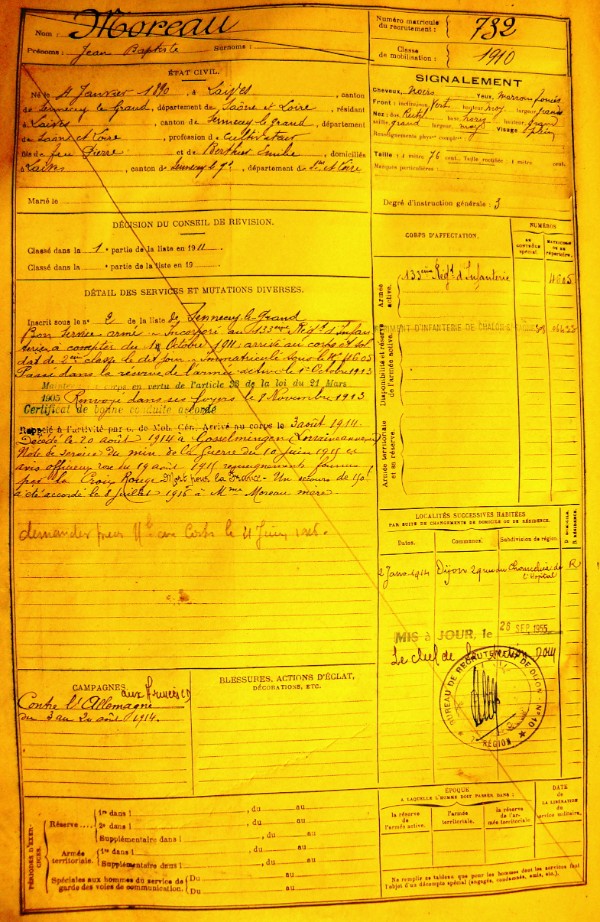 Nom : Moreau
Prénoms : Jean Baptiste Surnoms :
Numéro matricule du recrutement : 732
Classe de mobilisation : 1910
ÉTAT CIVIL.
Né le 4 Janvier 1890, à Laives, canton
de Sennecey le Grand, département de Saône et Loire, résidant
à Laives, canton de Sennecey le grand, département
de Saône et Loire, profession de Cultivateur
fils de feu Pierre et de Berthier Emilie, domiciliés
à Laives, canton de Sennecey le Gd, département de Sne et Loire
Marié le
SIGNALEMENT
Cheveux, noirs Yeux, marrons foncés
Front : inclinaison Vert hauteur moy largeur grande
Nez : dos Rect base horiz hauteur
grand largeur moy Visage
Renseignements phys. complém.
Taille : 1 mètre 76 cent. Taille rectifiée : 1 mètre cent.
Marques particulières :
Degré d'instruction générale : 3
DÉCISION DU CONSEIL DE REVISION.
Classé dans la 1e partie de la liste en 1911
Classé dans la e partie de la liste en 19
DÉTAIL DES SERVICES ET MUTATIONS DIVERSES.
Inscrit sous le no 2 de la liste de Sennecey-le-Grand
Bon service armé - Incorporé au 133ème Régt d'Infan
terie à compter du 1er Octobre 1911 arrivé au corps et sol
dat de 2ème classe le dit jour - Immatriculé sous le No 4605
Passé dans la réserve de l'armée active le 1er Octobre 1913
Maintenu au corps en vertu de l'article 33 de la loi du 21 Mars
1905 Renvoyé dans ses foyers le 8 Novembre 1913
Certificat de bonne conduite accordé
Rappelé à l'activité par o. de Mob. Gén. Arrivé au corps le 3 août 1914.
Décédé le 20 août 1914 à Cosselmengen (Lorraine annexée)
Note de service du min. de la Guerre du 10 juin 1915 et
avis officieux rose du 19 août 1915 renseignements fournis
par la Croix Rouge. Mort pour la France - Un secours de 150f
a été accordé le 8 juillet 1915 à Mme Moreau mère
demander corps le 21 Juin
CORPS D'AFFECTATION.
NUMÉROS
AU CONTRÔLE spécial.
MATRICULE OU DE répertoire.
Armée active.
133ème Régt d'Infanterie 4605
Disponibilité et réserve de l'armée active.
RÉGIMENT D'INFANTERIE DE CHALON-S-SAONE
Armée territoriale et sa réserve.
LOCALITÉS SUCCESSIVES HABITÉES
PAR SUITE DE CHANGEMENTS DE DOMICILE OU DE RÉSIDENCE.
Dates. Communes. Subdivision de région. D. DOMICILE R. RÉSIDENCE.
2 Janv. 1914 Dijon 29 rue du Chaudier de l'Hôpital R
MIS à JOUR, le 26 SEP. 1955
Le chef de
BUREAU DE RECRUTEMENT DE DIJON No 10
RÉGION
CAMPAGNES.
Contre l'Allemagne aux Armées
du 3 au 20 août 1914.
BLESSURES, ACTIONS D'ÉCLAT,
DÉCORATIONS, ETC.
PÉRIODES D'EXERCICES.
Réserve
1re dans l , du au
2e dans l , du au
Supplémentaire dans l , du au
Armée territoriale.
1re dans l , du au
Supplémentaire dans l , du au
Spéciales aux hommes du service de garde des voies de communication.
Du au
Du au
ÉPOQUE
A LAQUELLE L'HOMME DOIT PASSER DANS :
la réserve de l'armée active.
l'armée territoriale.
la réserve de l'armée territoriale.
DATE
de LA LIBÉRATION du service militaire.
Ne remplir ce tableau que pour les hommes dont les services font
l'objet d'un décompte spécial (engagés, condamnés, omis, etc.).